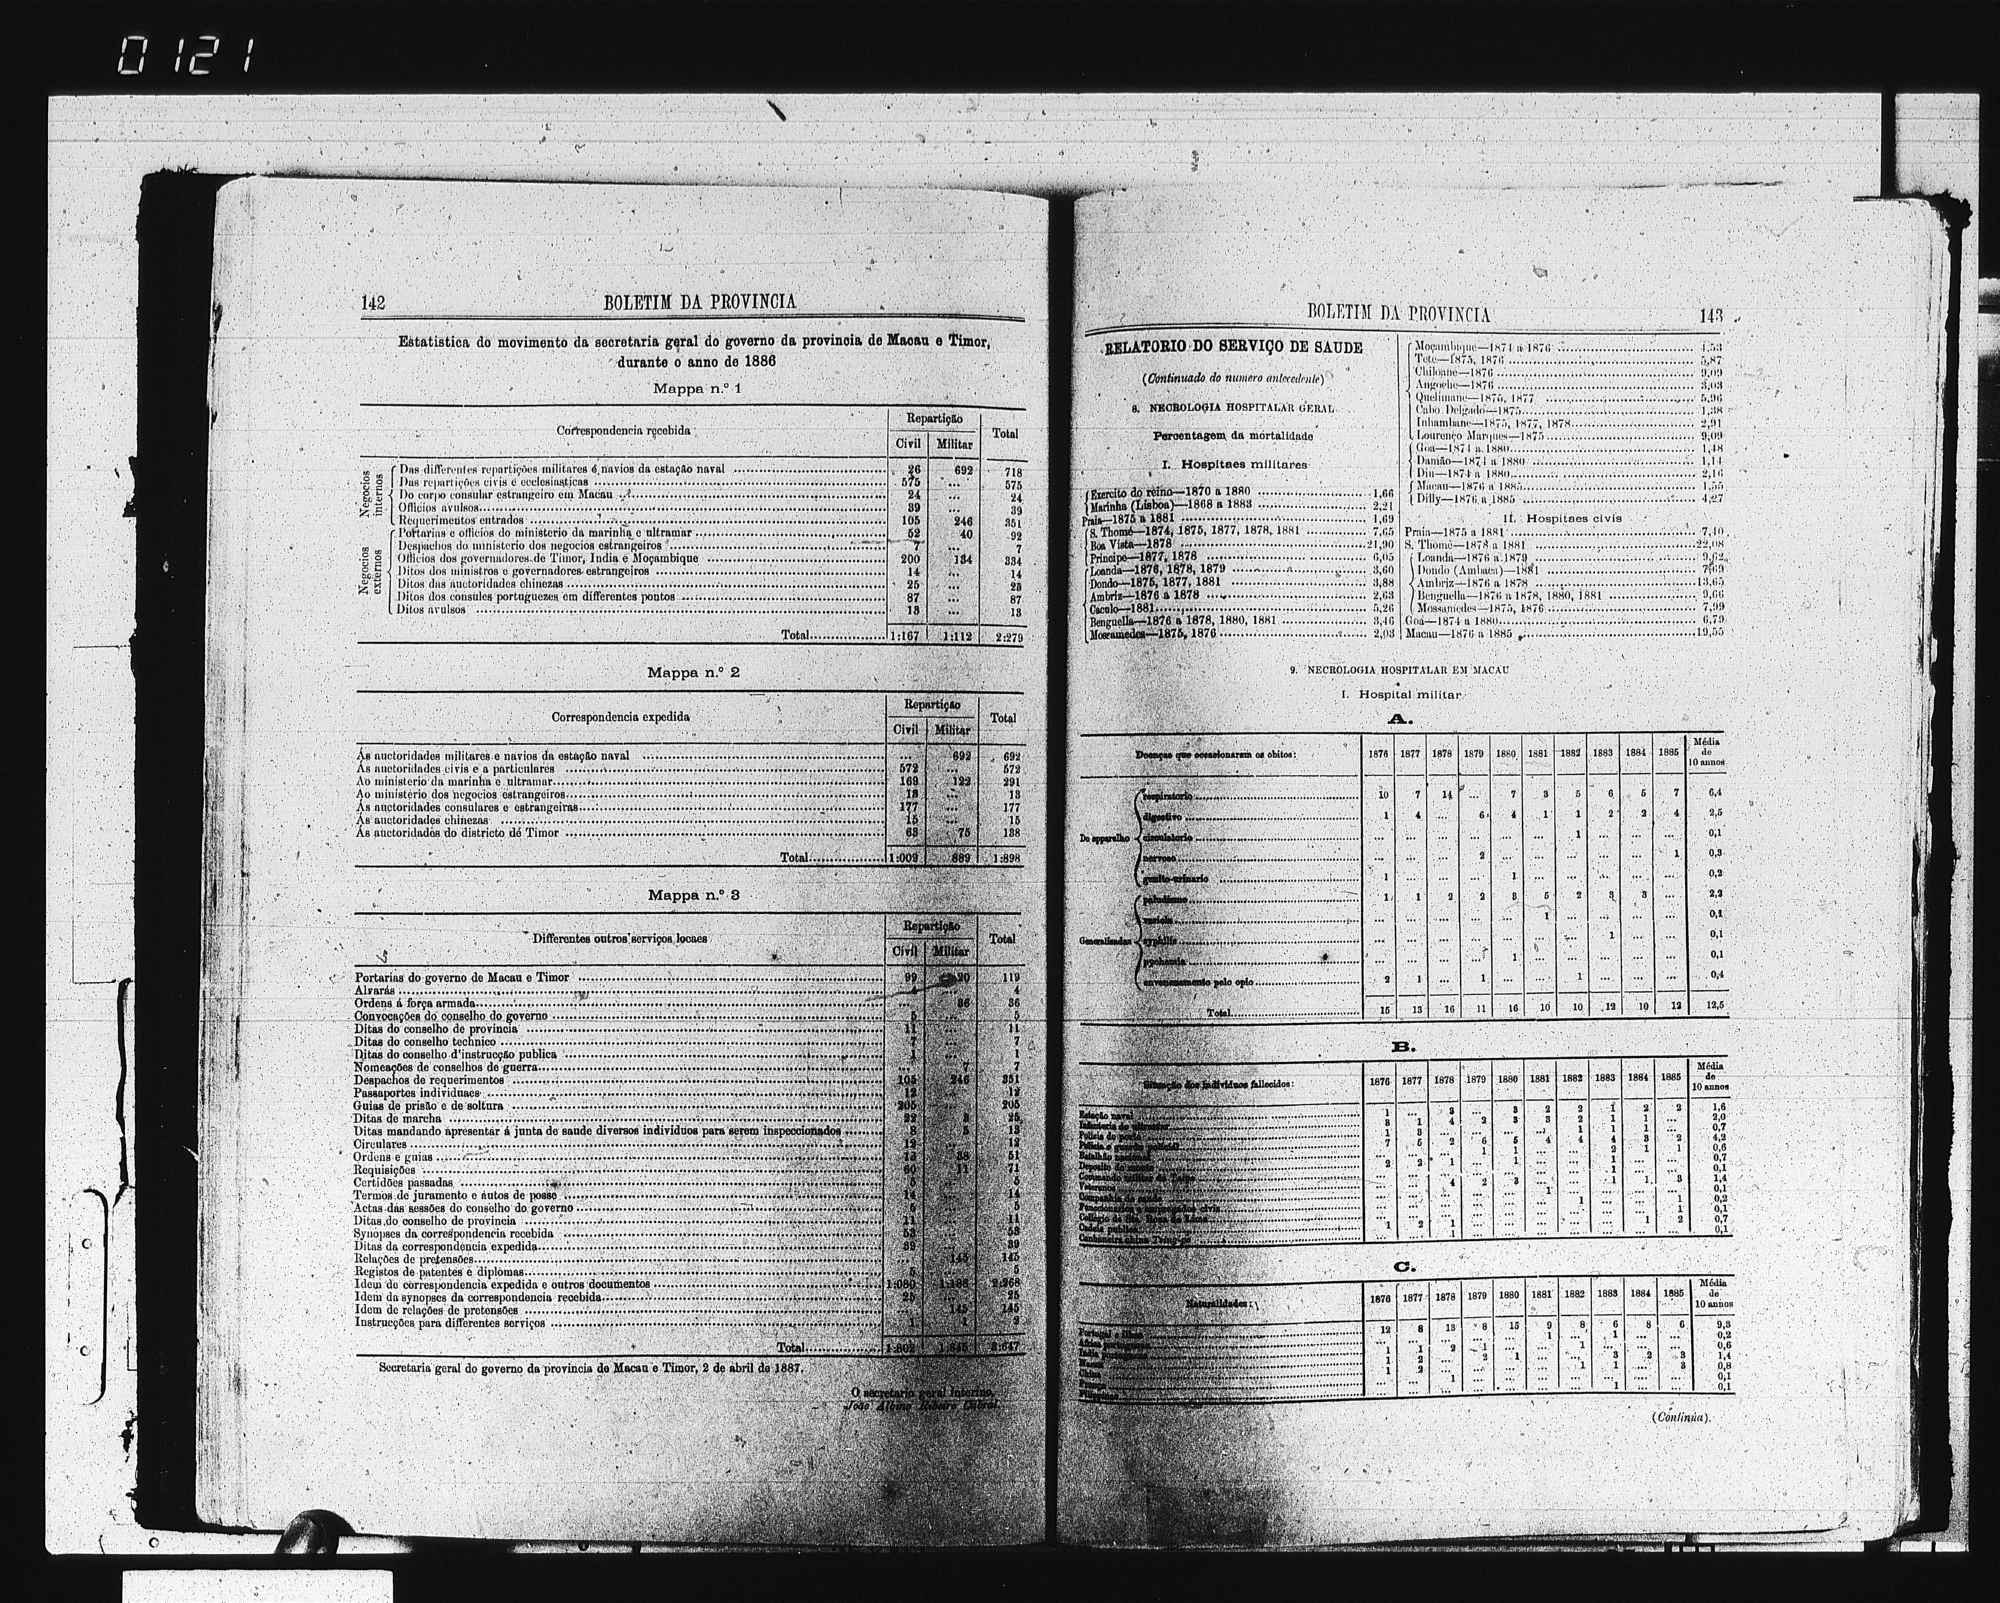 0121
142 BOLETIM DA PROVINCIA
Estatistica do movimento da secretaria geral do governo da provincia de Macau e Timor,
durante o anno de 1886
Mappa n.º 1
Correspondencia recebida
Repartição
Civil Militar Total
Negocios internos
Das differentes repartições militares é navios da estação naval 26 692 718
Das repartições civis e ecclesiasticas 575 ... 575
Do corpo consular estrangeiro em Macau 24 ... 24
Officios avulsos 39 ... 39
Requerimentos entrados 105 246 351
Negocios externos
Portarias e officios do ministerio da marinha e ultramar 52 40 92
Despachos do ministerio dos negocios estrangeiros 7 ... 7
Officios dos governadores de Timor, India e Moçambique 200 134 334
Ditos dos ministros e governadores estrangeiros 14 ... 14
Ditos das auctoridades chinezas 25 ... 25
Ditos dos consules portuguezes em differentes pontos 87 ... 87
Ditos avulsos 13 ... 13
Total 1:167 1:112 2:279
Mappa n.º 2
Correspondencia expedida
Repartição
Civil Militar Total
Ás auctoridades militares e navios da estação naval ... 692 692
Ás auctoridades civis e a particulares 572 ... 572
Ao ministerio da marinha e ultramar 169 122 291
Ao ministerio dos negocios estrangeiros 13 ... 13
Ás auctoridades consulares e estrangeiras 177 ... 177
Ás auctoridades chinezas 15 ... 15
Ás auctoridades do districto de Timor 63 75 138
Total 1:009 889 1:898
Mappa n.º 3
Differentes outros serviços locaes
Repartição
Civil Militar Total
Portarias do governo de Macau e Timor 99 20 119
Alvarás 4 ... 4
Ordens á força armada ... 36 36
Convocações do conselho do governo 5 ... 5
Ditas do conselho de provincia 11 ... 11
Ditas do conselho technico 7 ... 7
Ditas do conselho d'instrucção publica 1 ... 1
Nomeações de conselhos de guerra ... 7 7
Despachos de requerimentos 105 246 351
Passaportes individuaes 12 ... 12
Guias de prisão e de soltura 205 ... 205
Ditas de marcha 22 3 25
Ditas mandando apresentar á junta de saude diversos individuos para serem inspeccionados 8 5 13
Circulares 12 ... 12
Ordens e guias 13 38 51
Requisições 60 11 71
Certidões passadas 5 ... 5
Termos de juramento e autos de posse 14 ... 14
Actas das sessões do conselho do governo 5 ... 5
Ditas do conselho de provincia 11 ... 11
Synopses da correspondencia recebida 53 ... 53
Ditas da correspondencia expedida 39 ... 39
Relações de pretensões ... 145 145
Registos de patentes e diplomas 5 ... 5
Idem de correspondencia expedida e outros documentos 1:080 1:188 2:268
Idem da synopses da correspondencia recebida 25 ... 25
Idem de relações de pretensões ... 145 145
Instrucções para differentes serviços 1 1 2
Total 1:802 1:845 3:647
Secretaria geral do governo da provincia de Macau e Timor, 2 de abril de 1887.
O secretario geral interino,
João Albino Ribeiro Cabral.
BOLETIM DA PROVINCIA 143
RELATORIO DO SERVIÇO DE SAUDE
(Continuado do numero antecedente)
8. NECROLOGIA HOSPITALAR GERAL
Percentagem da mortalidade
I. Hospitaes militares
Exercito do reino—1870 a 1880 1,66
Marinha (Lisboa)—1868 a 1883 2,21
Praia—1875 a 1881 1,69
S. Thomé—1874, 1875, 1877, 1878, 1881 7,65
Boa Vista—1878 21,90
Principe—1877, 1878 6,05
Loanda—1876, 1878, 1879 3,60
Dondo—1875, 1877, 1881 3,88
Ambriz—1876 a 1878 2,63
Cacolo—1881 5,26
Benguella—1876 a 1878, 1880, 1881 3,46
Mossamedes—1875, 1876 2,03
Moçambique—1874 a 1876 4,53
Tete—1875, 1876 5,87
Chiloane—1876 9,09
Angoche—1876 3,03
Quelimane—1875, 1877 5,96
Cabo Delgado—1875 1,38
Inhambane—1875, 1877, 1878 2,91
Lourenço Marques—1875 9,09
Goa—1874 a 1880 1,48
Damão—1874 a 1880 1,14
Diu—1874 a 1880 2,16
Macau—1876 a 1885 1,55
Dilly—1876 a 1885 4,27
II. Hospitaes civis
Praia—1875 a 1881 7,10
S. Thomé—1878 a 1881 22,08
Loanda—1876 a 1879 9,62
Dondo (Ambaca)—1881 7,69
Ambriz—1876 a 1878 13,65
Benguella—1876 a 1878, 1880, 1881 9,66
Mossamedes—1875, 1876 7,99
Goa—1874 a 1880 6,79
Macau—1876 a 1885 19,55
9. NECROLOGIA HOSPITALAR EM MACAU
I. Hospital militar
A.
Doenças que occasionaram os obitos: 1876 1877 1878 1879 1880 1881 1882 1883 1884 1885 Média de 10 annos
Do apparelho
respiratorio 10 7 14 ... 7 3 5 6 5 7 6,4
digestivo 1 4 ... 6 4 1 1 2 2 4 2,5
circulatorio ... ... ... ... ... ... 1 ... ... ... 0,1
nervoso ... ... ... 2 ... ... ... ... ... 1 0,3
genito-urinario 1 ... ... ... 1 ... ... ... ... ... 0,2
Generalisadas
paludismo 1 1 2 2 3 5 2 3 3 ... 2,2
variola ... ... ... ... ... 1 ... ... ... ... 0,1
syphilis ... ... ... ... ... ... ... 1 ... ... 0,1
pyohemia ... ... ... ... 1 ... ... ... ... ... 0,1
envenenamento pelo opio 2 1 ... 1 ... ... 1 ... ... ... 0,4
Total 15 13 16 11 16 10 10 12 10 12 12,5
B.
Situação dos individuos fallecidos: 1876 1877 1878 1879 1880 1881 1882 1883 1884 1885 Média de 10 annos
Estação naval 1 ... 3 ... 3 2 2 1 2 2 1,6
3 1 4 2 3 3 2 1 1 ... 2,0
Policia do porto 1 3 ... ... ... ... 1 1 1 ... 0,7
7 5 2 6 5 4 4 4 3 2 4,2
C.
Naturalidades: 1876 1877 1878 1879 1880 1881 1882 1883 1884 1885 Média de 10 annos
12 8 13 8 15 9 8 6 8 6 9,3
(Continúa).